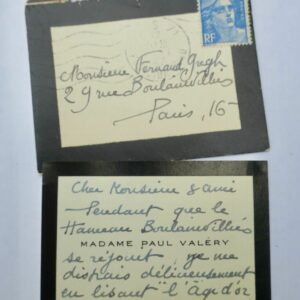 RF
Monsieur Fernand Gregh
29 rue Boulainvilliers
Paris, 16
Cher Monsieur & ami
Pendant que le
Hameau Boulainvilliers
MADAME PAUL VALÉRY
se réjouit, je me
disais délicieusement
en lisant "l'âge d'or